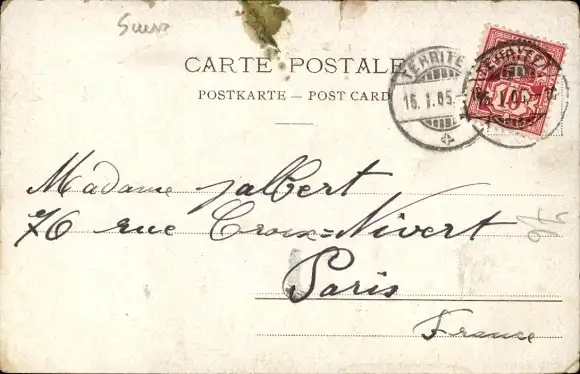 Suisse
CARTE POSTALE
POSTKARTE — POST CARD
TERRITET
16.1.05.
TERRITET
16.1.05.
10
Madame Jalbert
76 rue Croix=Nivert
Paris
France